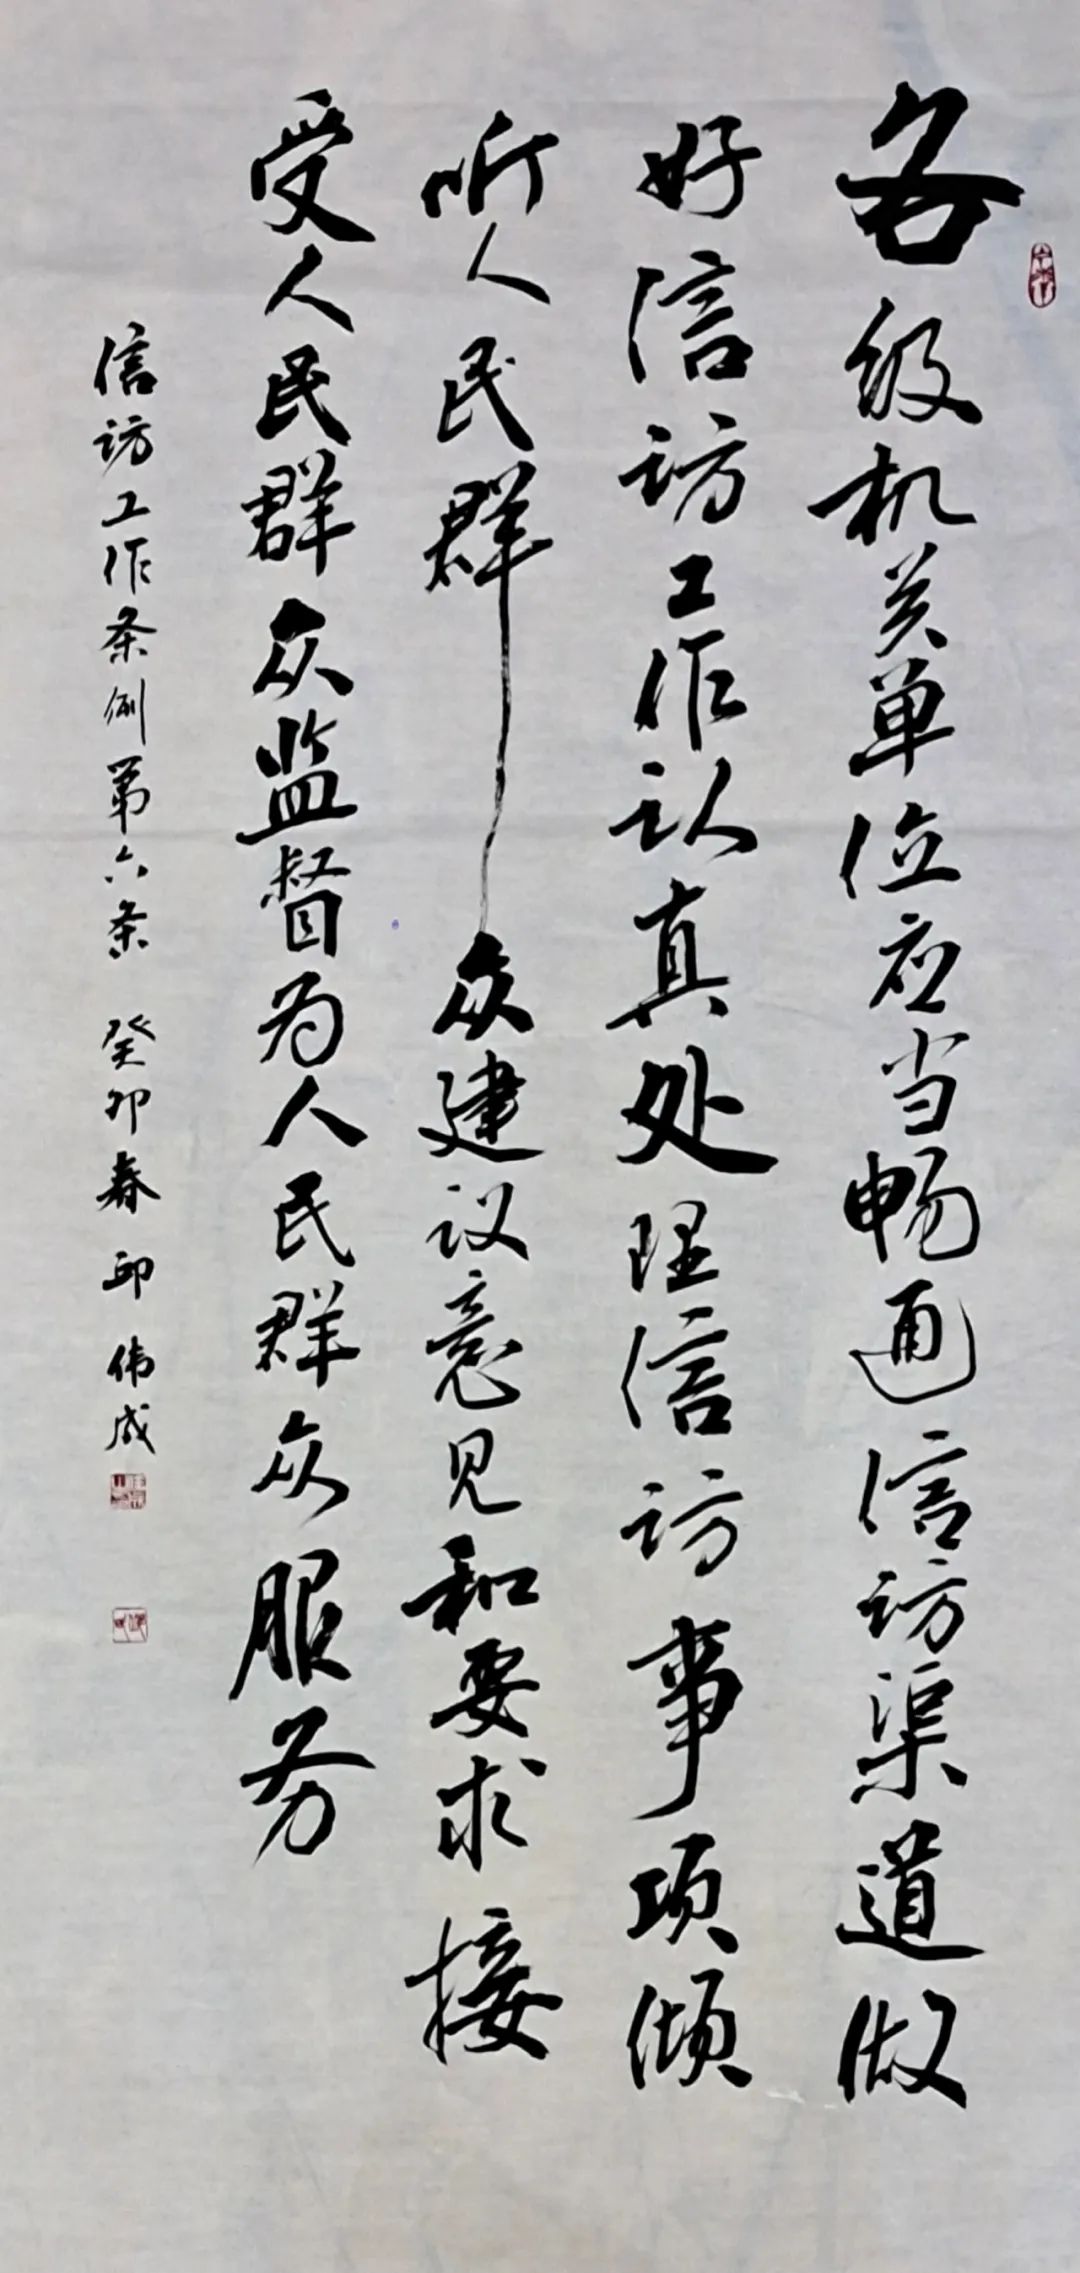 各级机关单位应当畅通信访渠道做
好信访工作认真处理信访事项倾
听人民群众建议意见和要求接
受人民群众监督为人民群众服务
信访工作条例第六条 癸卯春 邱伟成